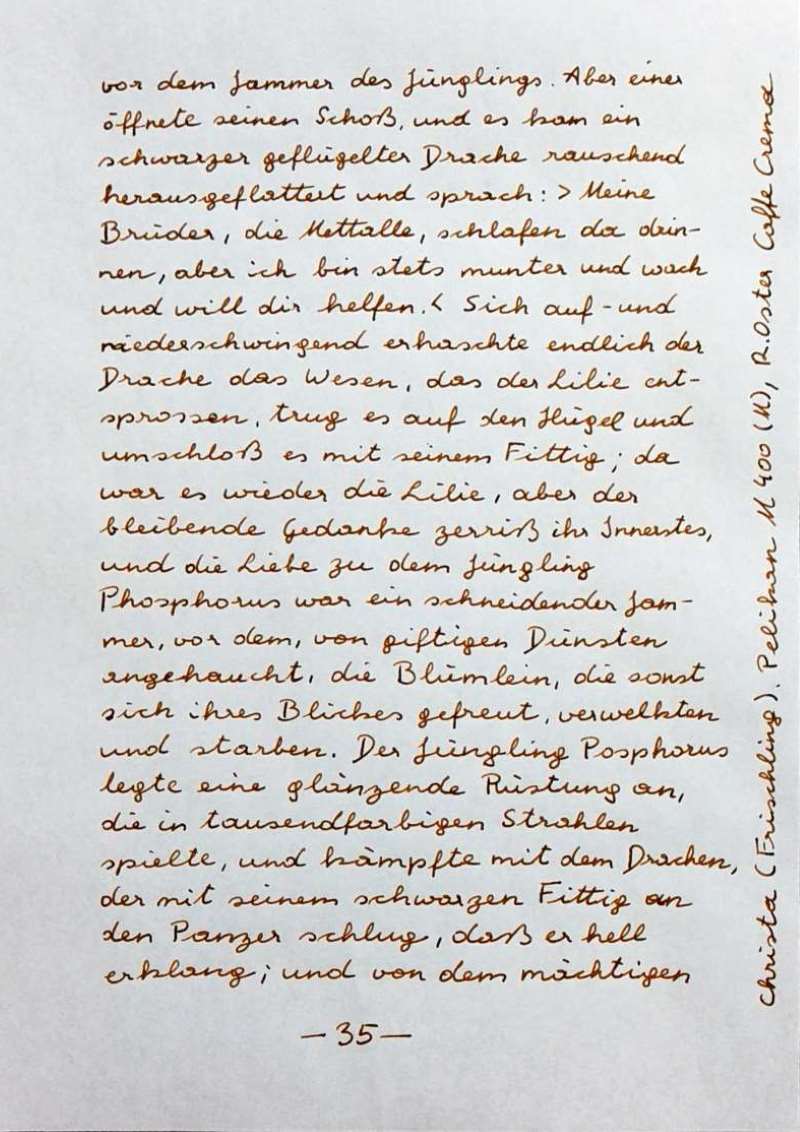 vor dem Jammer des Jünglings. Aber einer
öffnete seinen Schoß, und es kam ein
schwarzer geflügelter Drache rauschend
herausgeflattert und sprach: > Meine
Brüder, die Mettalle, schlafen da drin-
nen, aber ich bin stets munter und wach
und will dir helfen. < Sich auf - und
niederschwingend erhaschte endlich der
Drache das Wesen, das der Lilie ent-
sprossen, trug es auf den Hügel und
umschloß es mit seinem Fittig; da
war es wieder die Lilie, aber der
bleibende Gedanke zerriß ihr Innerstes,
und die Liebe zu dem Jüngling
Phosphorus war ein schneidender Jam-
mer, vor dem, von giftigen Dünsten
angehaucht, die Blümlein, die sonst
sich ihres Blickes gefreut, verwelkten
und starben. Der Jüngling Posphorus
legte eine glänzende Rüstung an,
die in tausendfarbigen Strahlen
spielte, und kämpfte mit dem Drachen,
der mit seinem schwarzen Fittig an
den Panzer schlug, daß er hell
erklang; und von dem mächtigen
— 35 —
Christa (Frischling). Pelikan M 400 (M), R. Oster Caffe Crema